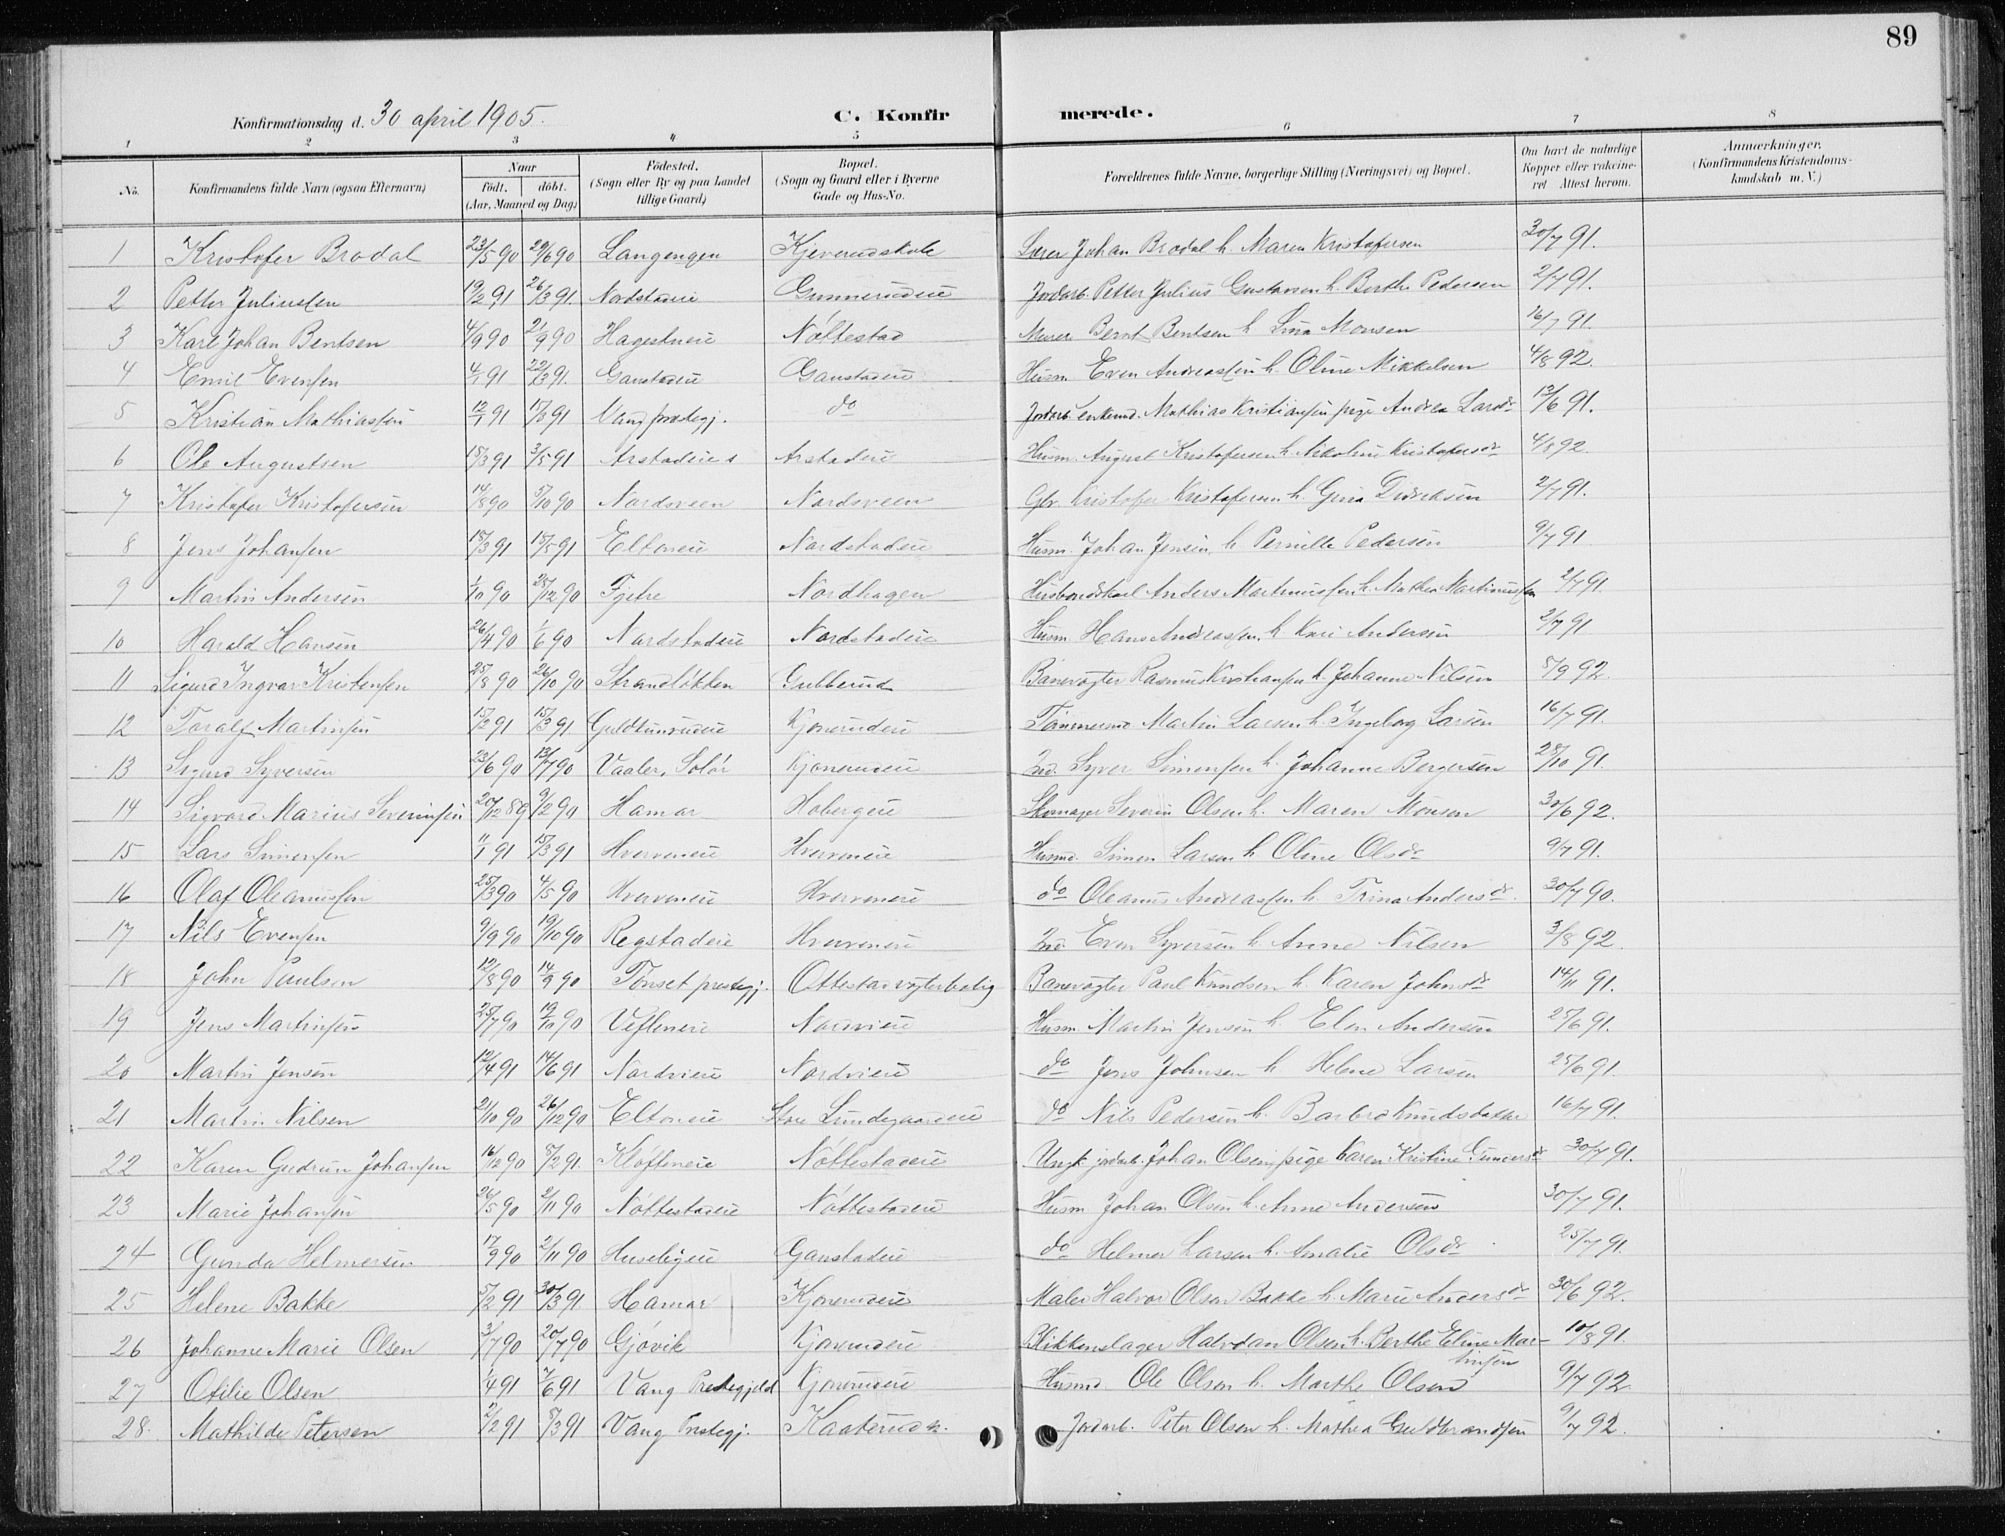 89
Konfirmationsdag d. 30 april 1905. C. Konfir merede.
1 2 3 4 5 6 7 8
No. Konfirmandens fulde Navn (ogsaa Efternavn) Naar født. døbt. (Aar, Maaned og Dag) Fødested. (Sogn eller By og paa Landet tillige Gaard) Bopæl. (Sogn og Gaard eller i Byerne Gade og Hus-No. Forældrenes fulde Navne, borgerlige Stilling (Næringsvei) og Bopæl. Om havt de naturlige Kopper eller vakcineret. Attest herom. Anmærkninger. (Konfirmandens Kristendomskundskab m. V.)
1 Kristofer Brodal 23/5 90 29/6 90 Langengen Kjeverudskole Lærer Johan Brodal h. Maren Kristofersen 30/7 91.
2 Petter Juliussen 19/2 91 26/3 91. Nordstadeie Gunnerudeie Jordarb. Petter Julius Gustavsen h. Berthe Pedersen 2/7 91.
3 Karl Johan Bentsen 4/9 90 21/9 90 Hagestueie Nøttestad Murer Bernt Bentsen h. Lina Monsen 16/7 91.
4 Emil Evensen 4/1 91 22/3 91. Ganstadeie Ganstadeie Husm. Even Andreassen h. Oline Mikkelsen 4/8 92.
5 Kristian Mathiassen 12/1 91 15/3 91 Vang prestegj. do Jordarb. enkem. Mathias Kristiansen pige Andrea Larsdr 13/6 91.
6 Ole Augustsen 18/3 91 3/5 91 Arstadeie Arstadeie Husm. August Kristofersen h. Nikoline Kristofersdr 4/8 92.
7 Kristofer Kristofersen 14/8 90 5/10 90 Nordsveen Nordsveen Gbr. Kristofer Kristofersen h. Gina Didriksen 2/7 91.
8 Jens Johansen 18/3 91 18/5 91 Eltoneie Nordstadeie Husm. Johan Jensen h. Pernille Pedersen 9/7 91
9 Martin Andersen 1/10 90 25/12 90 Fjetre Nordhagen Husbondskarl Anders Martinussen h. Mathea Martinussen 2/7 91.
10 Harald Hansen 26/4 90 1/6 90 Nordstadeie Nordstadeie Husm. Hans Andreassen h. Kari Andersen 2/7 91
11 Sigurd Ingvar Kristensen 25/8 90 26/10 90 Strandløkken Gubberud Banevogter Rasmus Kristiansen h. Johanne Nilsen 5/9 92.
12 Toralf Martinsen 15/2 91 15/3 91. Guldtunrudeie Kjonerudeie Tømmermd Martin Larsen h. Ingeborg Larsen 16/7 91.
13 Sigurd Syversen 23/6 90 13/7 90 Vaaler, Solør Kjonerudeie Ind. Syver Simensen h. Johanne Bergersen 28/10 91.
14 Sigvard Marius Severinsen 20/12 89 9/2 90 Hamar Hobergeie Skomager Severin Olsen h. Maren Monsen 30/6 92.
15 Lars Simensen 11/1 91 15/3 91 Hverveneie Hverveneie Husmd. Simen Larsen h. Oline Olsdr 9/7 91.
16 Olaf Oleanussen 25/3 90 4/5 90 Hverveneie Hverveneie do Oleanus Andreassen h. Trina Andersdr. 30/7 90.
17 Nils Evensen 9/9 90 19/10 90 Regstadeie Hverveneie Ind. Even Syversen h. Anne Nilsen 3/8 92.
18 John Paulsen 12/8 90 14/9 90 Tønset prestegj. Ottestad vogterbolig Banevogter Paul Knudsen h. Karen Johnsdr 14/11 91.
19 Jens Martinsen 25/7 90 19/10 90 Vefleneie Nordvieie Husm. Martin Jensen h. Elen Andersen 25/6 91.
20 Martin Jensen 12/4 91 14/6 91 Nordvieie Nordvieie do Jens Johnsen h. Helene Larsen 25/6 91.
21 Martin Nilsen 21/10 90 26/12 90 Eltoneie Store Lundegaardeie do Nils Pedersen h. Barbro Knudsdatter 16/7 91.
22 Karen Gudrun Johansen 16/12 90 8/2 91. Kløfteneie Nøttestadeie Ungk. jordarb. Johan Olsen, pige Karen Kristine Gunersdr 30/7 91.
23 Marie Johansen 26/5 90 2/11 90 Nøttestadeie Nøttestadeie Husm. Johan Olsen h. Anne Andersens 30/7 91.
24 Gunda Helmersen 17/9 90 2/11 90 Huseligeie Ganstadeie do Helmer Larsen h. Amalie Olsdr. 25/7 91.
25 Helene Bakke 5/2 91 30/3 91. Hamar Kjonerudeie Maler Halvor Olsen Bakke h. Marie Andersdr 30/6 92.
26 Johanne Marie Olsen 3/7 90 20/7 90 Gjøvik Kjonerudeie Blikkenslager Halvdan Olsen h. Berthe Eline Mar- 10/8 91.
tinsen
27 Otilie Olsen 1/4 91 7/6 91 Vang Prestegjeld Kjonerudeie Husmd. Ole Olsen h. Marthe Olsen 9/7 92.
28. Mathilde Petersen 2/2 91 8/3 91 Vang Prestegj. Kaaterud Jordarb. Peter Olsen h. Mathea Guldbrandsen 9/7 92.